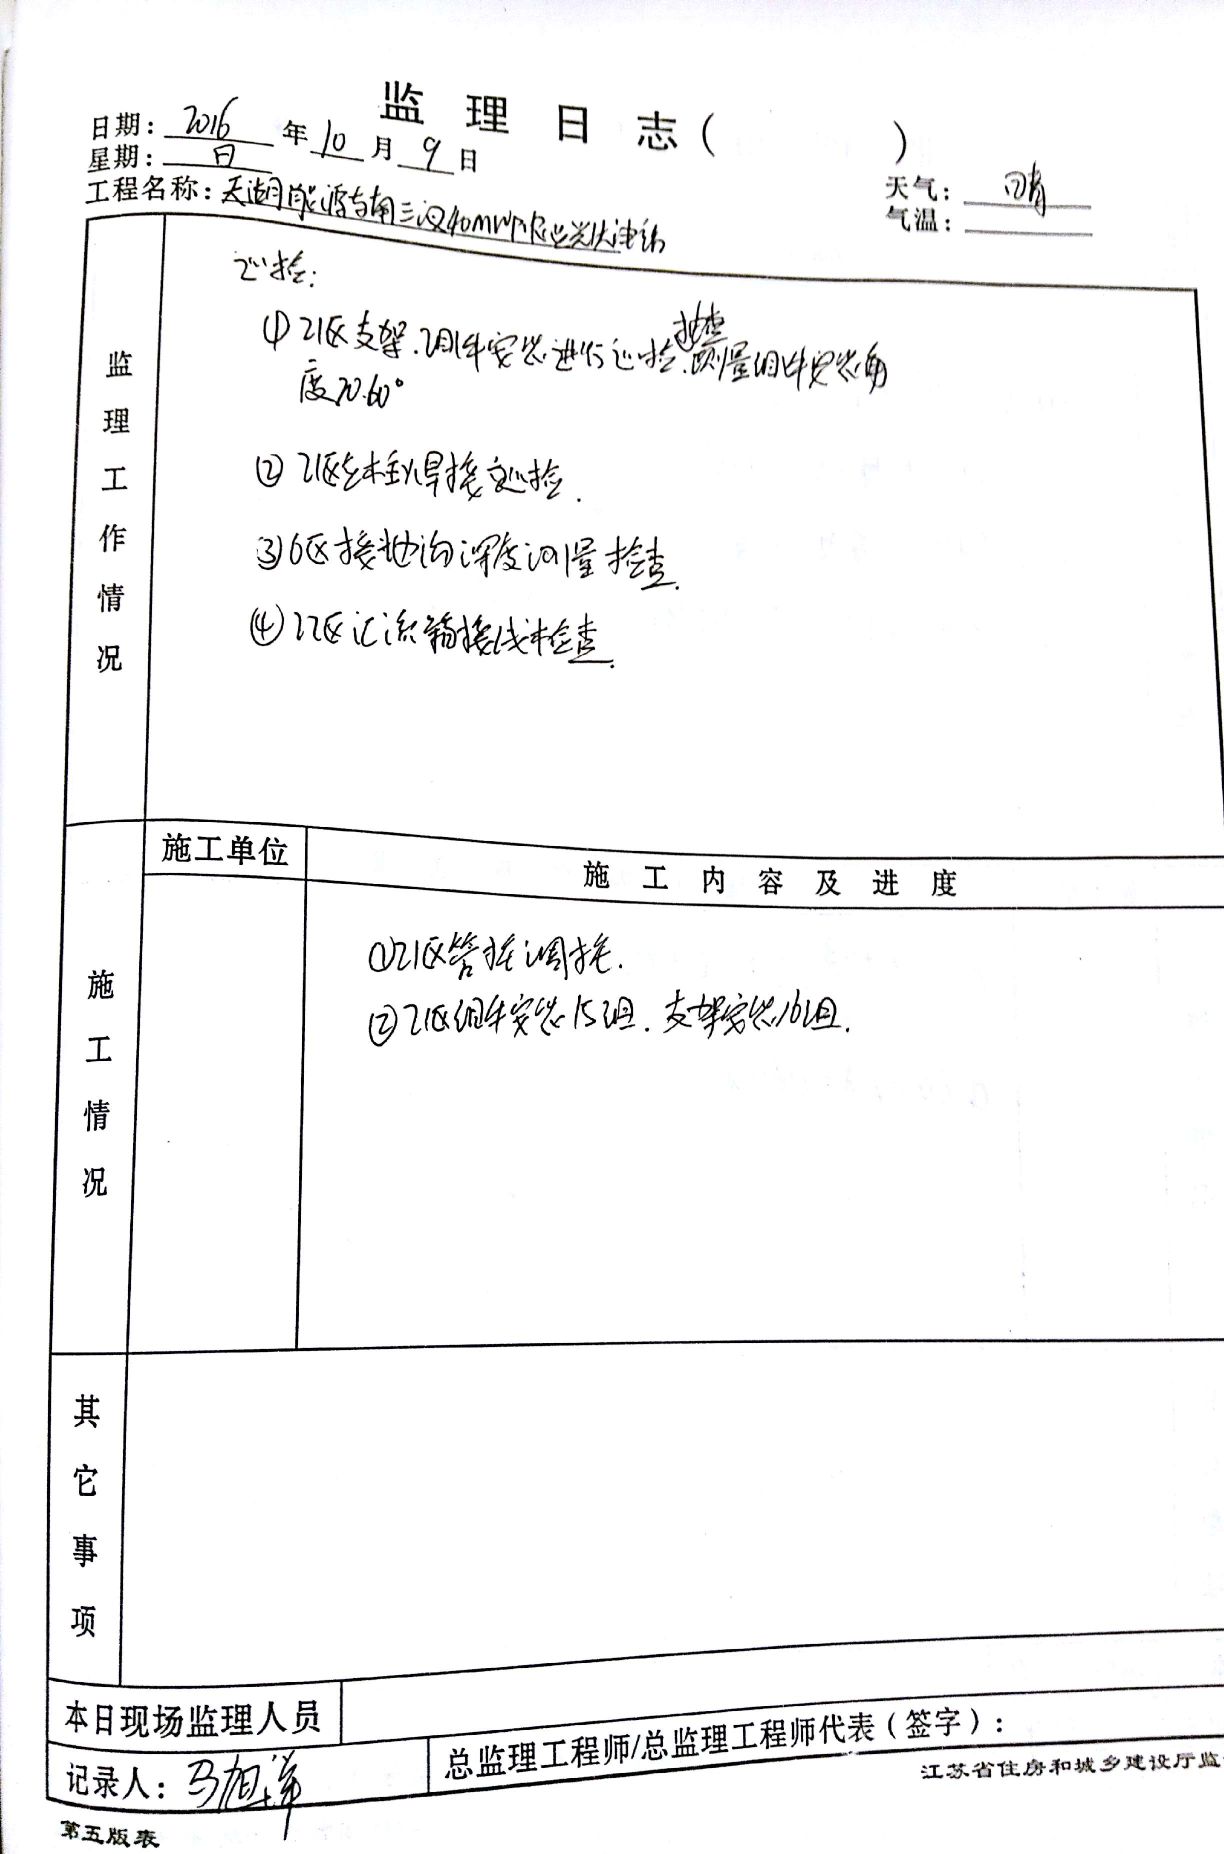 监理日志（ ）
日期：2016年10月9日
星期：日
天气：晴
气温：
工程名称：天湖能源 三汊40MWp农业光伏
监理工作情况
巡检：
①21区支架、组件安装进行巡检、抽查测量组件安装角
度20.60°
②21区 焊接巡检.
③6区接地沟深度测量检查.
④22区汇流箱接线检查.
施工单位
施工内容及进度
施工情况
①21区管桩调桩.
②21区组件安装15组、支架安装16组.
其它事项
本日现场监理人员
总监理工程师/总监理工程师代表（签字）：
记录人：马旭
江苏省住房和城乡建设厅监
第五版表